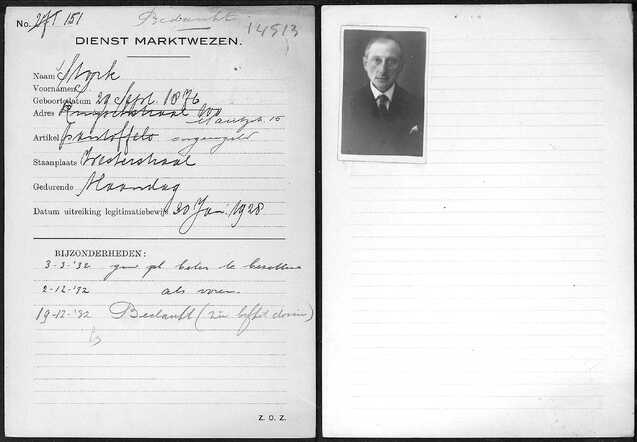 Bedankt
No. 151
14513
DIENST MARKTWEZEN.
Naam Stork
Voornamen
Geboortedatum 29 Sept. 1876
Adres
Artikel Pantoffels ongeregeld
Staanplaats Westerstraat
Gedurende Maandag
Datum uitreiking legitimatiebewijs 30 Jan. 1928
BIJZONDERHEDEN:
3-3-'32 geen pl. beter te
2-12-'32 als voren
19-12-'32 Bedankt (zie
Z. O. Z.